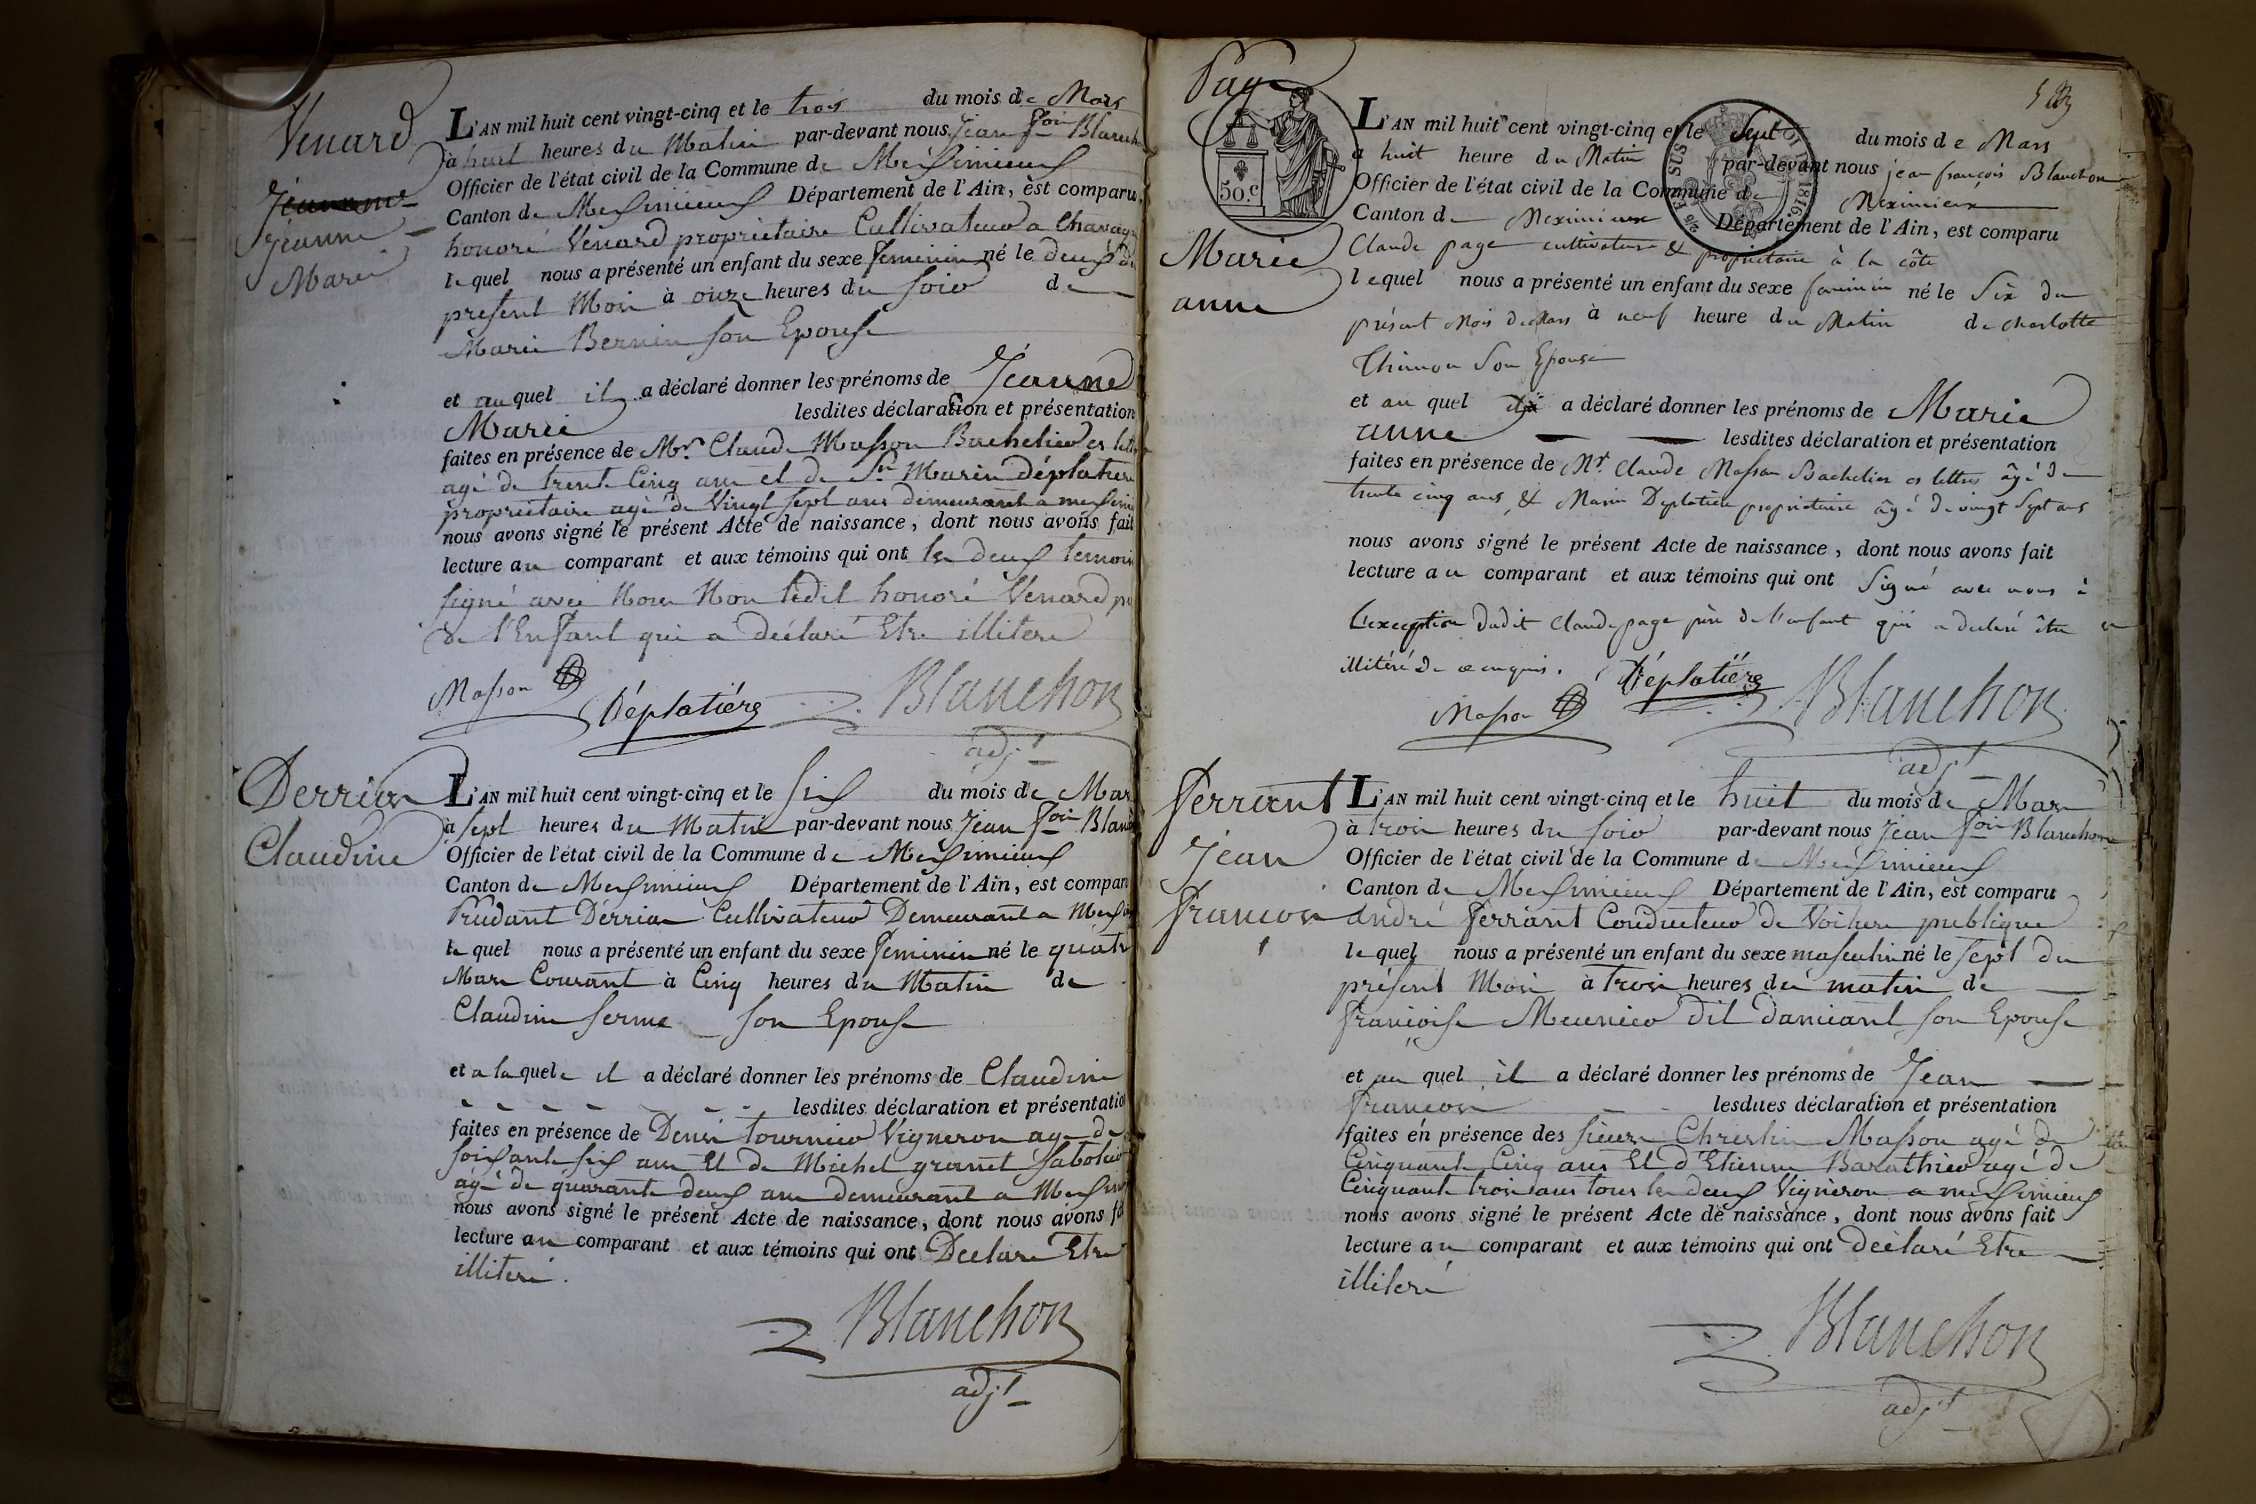 Venard
Jeanne
Marie
L'AN mil huit cent vingt-cinq et le trois du mois de Mars
à huit heures du Matin par-devant nous Jean fois Blanch
Officier de l'état civil de la Commune de Meximieux
Canton de Meximieux Département de l'Ain, est comparu
honoré Venard propriétaire Cultivateur a Chavagn
lequel nous a présenté un enfant du sexe feminin né le deux du
present Mois à onze heures du soir de
Marie Bernin son Epouse
et auquel il a déclaré donner les prénoms de Jeanne
Marie lesdites déclaration et présentation
faites en présence de Mr. Claude Masson Bachelier es lettr
agé de trente Cinq ans et de Sr. Marin déplatiere
propriétaire agé de Vingt sept ans demeurant a mexim
nous avons signé le présent Acte de naissance, dont nous avons fait
lecture au comparant et aux témoins qui ont les deux temoin
signé avec Nous Non ledit honoré Venard
de l'Enfant qui a déclaré Etre illiteré
Masson Déplatiére Blanchon
adjt
Derrion
Claudine
L'AN mil huit cent vingt-cinq et le six du mois de Mar
à sept heures du Matin par-devant nous Jean fois Blan
Officier de l'état civil de la Commune de Meximieux
Canton de Meximieux Département de l'Ain, est compar
Prudant Derrion Cultivateur Demeurant a Mex
lequel nous a présenté un enfant du sexe feminin né le quatr
Mars Courant à Cinq heures du Matin de
Claudine ferme son Epouse
et a laquele il a déclaré donner les prénoms de Claudine
lesdites déclaration et présentatio
faites en présence de Denis tournier Vigneron agé de
soixante six ans Et de Michel granet Sabotier
agé de quarante deux ans demeurant a Mexim
nous avons signé le présent Acte de naissance, dont nous avons f
lecture au comparant et aux témoins qui ont Declaré Etre
illiteré.
Blanchon
adjt
Page
50.c
Marie
anne
L'AN mil huit cent vingt-cinq et le Sept du mois de Mars
a huit heure du Matin par-devant nous jean françois Blanchon
Officier de l'état civil de la Commune de Meximieux
Canton de Meximieux Département de l'Ain, est comparu
Claude page cultivateur & propriétaire à la côte
lequel nous a présenté un enfant du sexe feminin né le Six du
présent Mois de Mars à neuf heure du Matin de charlotte
Thimon Son Epouse
et au quel a déclaré donner les prénoms de Marie
anne lesdites déclaration et présentation
faites en présence de Mr. Claude Masson Bachelier es lettres âgé de
trente cinq ans, & Marin Deplatière propriétaire âgé de vingt Sept ans
nous avons signé le présent Acte de naissance, dont nous avons fait
lecture au comparant et aux témoins qui ont Signé avec nous à
L'exception dudit Claude page père de l'enfant qui a déclaré être
illitéré de ce enquis.
Masson Déplatiére Blanchon
adjt
ferrant
Jean
françois
L'AN mil huit cent vingt-cinq et le huit du mois de Mars
à trois heures du soir par-devant nous Jean fois Blanchon
Officier de l'état civil de la Commune de Meximieux
Canton de Meximieux Département de l'Ain, est comparu
andré ferrant Conducteur de Voiture publique
lequel nous a présenté un enfant du sexe masculin né le sept du
présent Mois à trois heures du matin de
françoise Meunier dit damiant son Epouse
et au quel il a déclaré donner les prénoms de Jean
françois lesdites déclaration et présentation
faites en présence des sieurs Christin Masson agé de
Cinquante Cinq ans Et d'Etienne Barathier agé de
Cinquante trois ans tous les deux Vigneron a meximieux
nous avons signé le présent Acte de naissance, dont nous avons fait
lecture au comparant et aux témoins qui ont déclaré Etre
illiteré
Blanchon
adjt